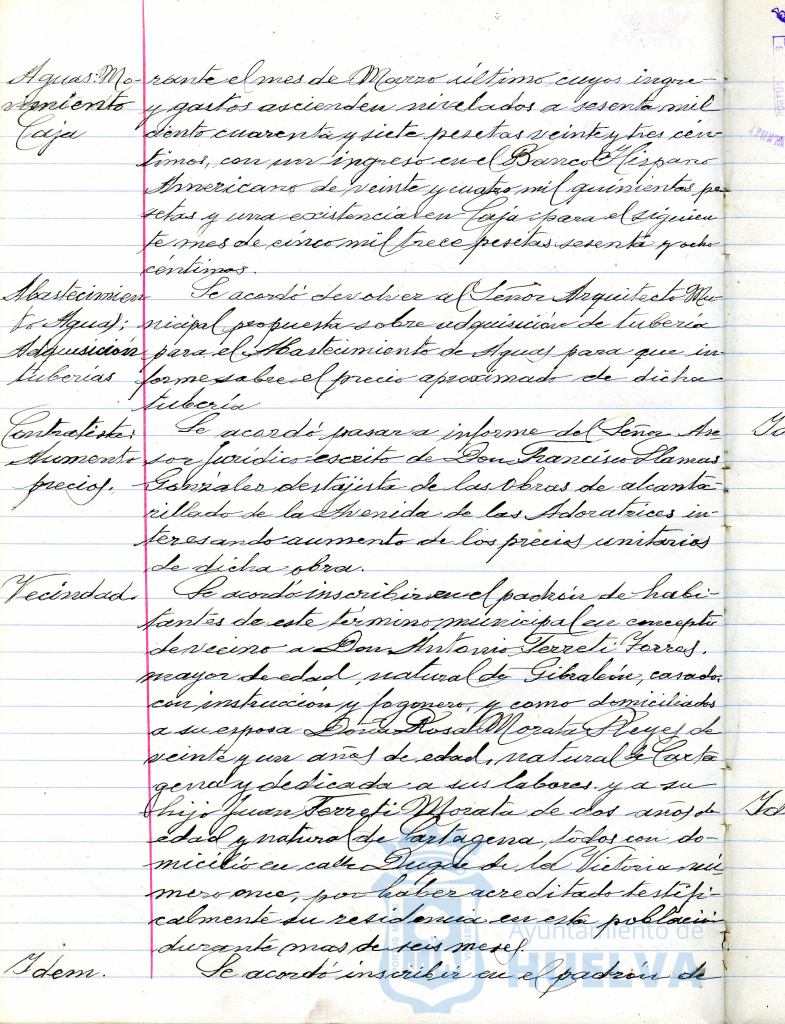 Aguas: Mo-
vimiento
Caja
rante el mes de Marzo último cuyos ingre-
y gastos ascienden nivelados a sesenta mil
ciento cuarenta y siete pesetas veinte y tres cén-
timos, con un ingreso en el Banco Hispano
Americano de veinte y cuatro mil quinientas pe
setas y una existencia en Caja para el siguien
te mes de cinco mil trece pesetas sesenta y ocho
céntimos.
Abastecimien
to Aguas:
Adquisición
tuberías
Se acordó devolver al Señor Arquitecto Mu-
nicipal propuesta sobre adquisición de tubería
para el Abastecimiento de Aguas para que in-
forme sobre el precio aproximado de dicha
tubería
Contratista:
Aumento
precios.
Se acordó pasar a informe del Señor Ase-
sor Jurídico escrito de Don Francisco Llamas
González destajista de las obras de alcanta-
rillado de la Avenida de las Adoratrices in-
teresando aumento de los precios unitarios
de dicha obra.
Vecindad.
Se acordó inscribir en el padrón de habi-
tantes de este término municipal en concepto
de vecino a Don Antonio Ferreti Torres,
mayor de edad, natural de Gibraleón, casado,
con instrucción y fogonero, y como domiciliados
a su esposa Doña Rosa Morata Reyes de
veinte y un años de edad, natural de Carta
gena y dedicada a sus labores y a su
hijo Juan Ferreti Morata de dos años de
edad y natural de Cartagena, todos con do-
micilio en calle Duque de la Victoria nú
mero once, por haber acreditado testifi-
calmente su residencia en esta población
durante mas de seis meses.
Idem.
Se acordó inscribir en el padrón de
Ayuntamiento de
HUELVA